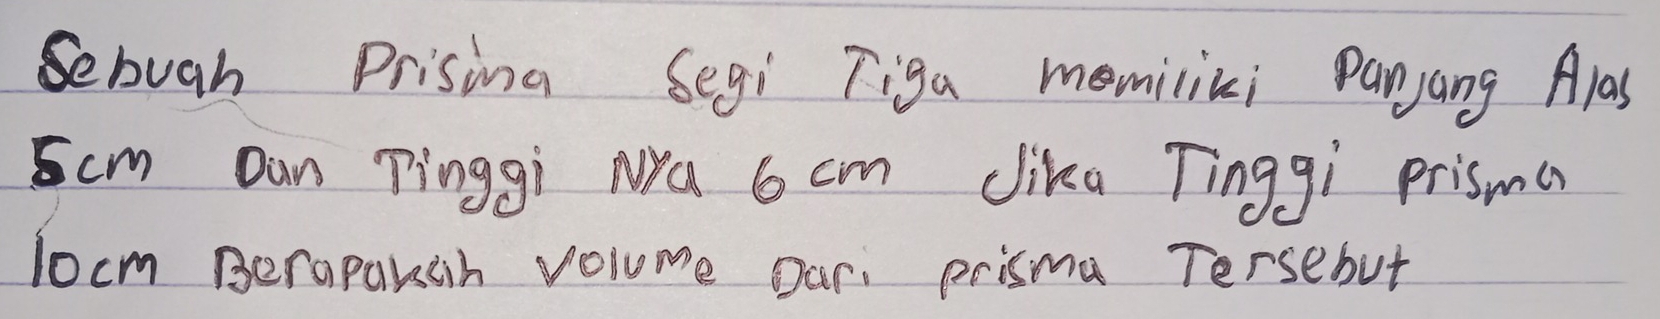 Sebuah Prisma Segi Tiga memiliki Panjang Alas
5cm Dan Tinggi Nya 6 cm Jika Tinggi prisma
10cm Berapakah volume Dari prisma Tersebut